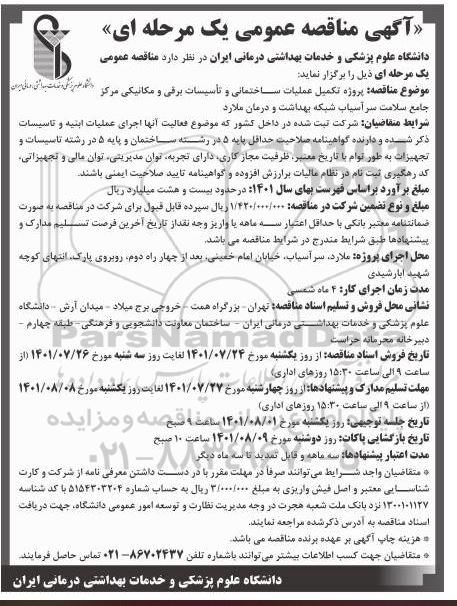 «آگهی مناقصه عمومی یک مرحله ای»
دانشگاه علوم پزشکی و خدمات بهداشتی درمانی ایران
دانشگاه علوم پزشکی و خدمات بهداشتی درمانی ایران در نظر دارد مناقصه عمومی
یک مرحله ای ذیل را برگزار نماید:
موضوع مناقصه: پروژه تکمیل عملیات ساختمانی و تأسیسات برقی و مکانیکی مرکز
جامع سلامت سرآسیاب شبکه بهداشت و درمان ملارد
شرایط متقاضیان: شرکت ثبت شده در داخل کشور که موضوع فعالیت آنها اجرای عملیات ابنیه و تاسیسات
ذکر شده و دارنده گواهینامه صلاحیت حداقل پایه ۵ در رشته ساختمان و پایه ۵ در رشته تاسیسات و
تجهیزات به طور توام با تاریخ معتبر، ظرفیت مجاز کاری، دارای تجربه، توان مدیریتی، توان مالی و تجهیزاتی،
کد رهگیری ثبت نام در نظام مالیات برارزش افزوده و گواهینامه تایید صلاحیت ایمنی باشند.
مبلغ برآورد براساس فهرست بهای سال ۱۴۰۱: درحدود بیست و هشت میلیارد ریال
مبلغ و نوع تضمین شرکت در مناقصه: ۱/۴۲۰/۰۰۰/۰۰۰ ریال سپرده قابل قبول برای شرکت در مناقصه به صورت
ضمانتنامه معتبر بانکی با حداقل اعتبار سه ماهه یا واریز وجه نقداز تاریخ آخرین فرصت تسلیم مدارک و
پیشنهادها طبق شرایط مندرج در شرایط مناقصه می باشد.
محل اجرای پروژه: ملارد، سرآسیاب، خیابان امام خمینی، بعد از چهار راه دوم، روبروی پارک، انتهای کوچه
شهید آبارشیدی
مدت زمان اجرای کار: ۴ ماه شمسی
نشانی محل فروش و تسلیم اسناد مناقصه: تهران- بزرگراه همت - خروجی برج میلاد - میدان آرش - دانشگاه
علوم پزشکی و خدمات بهداشتی درمانی ایران - ساختمان معاونت دانشجویی و فرهنگی- طبقه چهارم -
دبیرخانه محرمانه حراست
تاریخ فروش اسناد مناقصه: از روز یکشنبه مورخ ۱۴۰۱/۰۷/۲۴ لغایت روز سه شنبه مورخ ۱۴۰۱/۰۷/۲۶ (از
ساعت ۹ الی ساعت ۱۵:۳۰ روزهای اداری)
مهلت تسلیم مدارک و پیشنهادها: از روز چهارشنبه مورخ ۱۴۰۱/۰۷/۲۷ لغایت روز یکشنبه مورخ ۱۴۰۱/۰۸/۰۸
(از ساعت ۹ الی ساعت ۱۵:۳۰ روزهای اداری)
تاریخ جلسه توجیهی: روز یکشنبه مورخ ۱۴۰۱/۰۸/۰۱ ساعت ۹ صبح
تاریخ بازگشایی پاکات: روز دوشنبه مورخ ۱۴۰۱/۰۸/۰۹ ساعت ۱۰ صبح
مدت اعتبار پیشنهادها: سه ماهه و قابل تمدید تا سه ماه دیگر
* متقاضیان واجد شرایط می‌توانند صرفاً در مهلت مقرر با در دست داشتن معرفی نامه از شرکت و کارت
شناسایی معتبر و اصل فیش واریزی به مبلغ ۳/۰۰۰/۰۰۰ ریال به حساب شماره ۵۱۵۴۳۰۳۲۰۴ با کد شناسه
۱۳۰۰۱۰۱۱۲۷ نزد بانک ملت شعبه هجرت در وجه مدیریت نظارت و توسعه امور عمومی دانشگاه، جهت دریافت
اسناد مناقصه به آدرس ذکرشده مراجعه نمایند.
* هزینه چاپ آگهی بر عهده برنده مناقصه می باشد.
* متقاضیان جهت کسب اطلاعات بیشتر می‌توانند باشماره تلفن ۸۶۷۰۲۴۳۷-۰۲۱ تماس حاصل فرمایند.
دانشگاه علوم پزشکی و خدمات بهداشتی درمانی ایران
ParsNamadData